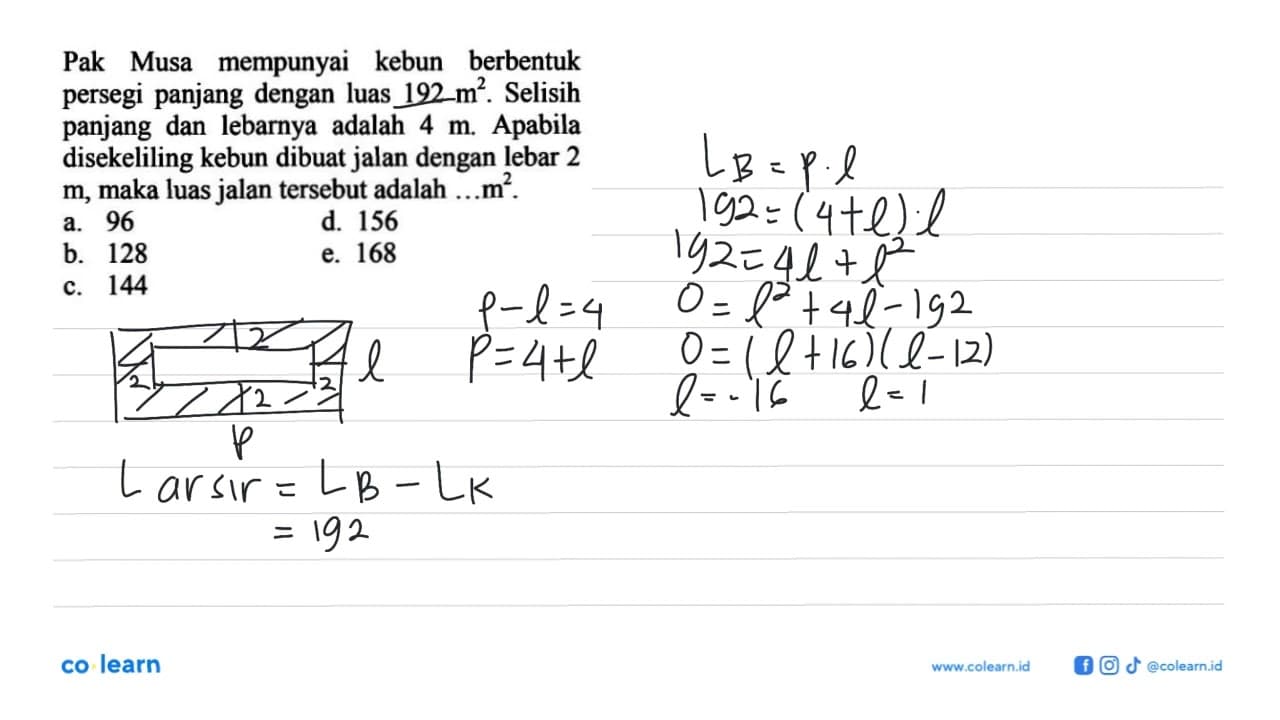 Pak Musa mempunyai kebun berbentuk
persegi panjang dengan luas 192 m². Selisih
panjang dan lebarnya adalah 4 m. Apabila
disekeliling kebun dibuat jalan dengan lebar 2
m, maka luas jalan tersebut adalah ...m².
a. 96 d. 156
b. 128 e. 168
c. 144
2
2 2 l
2
p
L arsir = LB - LK
= 192
p-l=4
p=4+l
LB = p.l
192=(4+l).l
192=4l+l²
0=l²+4l-192
0=(l+16)(l-12)
l=-16 l=1
co learn
www.colearn.id @colearn.id